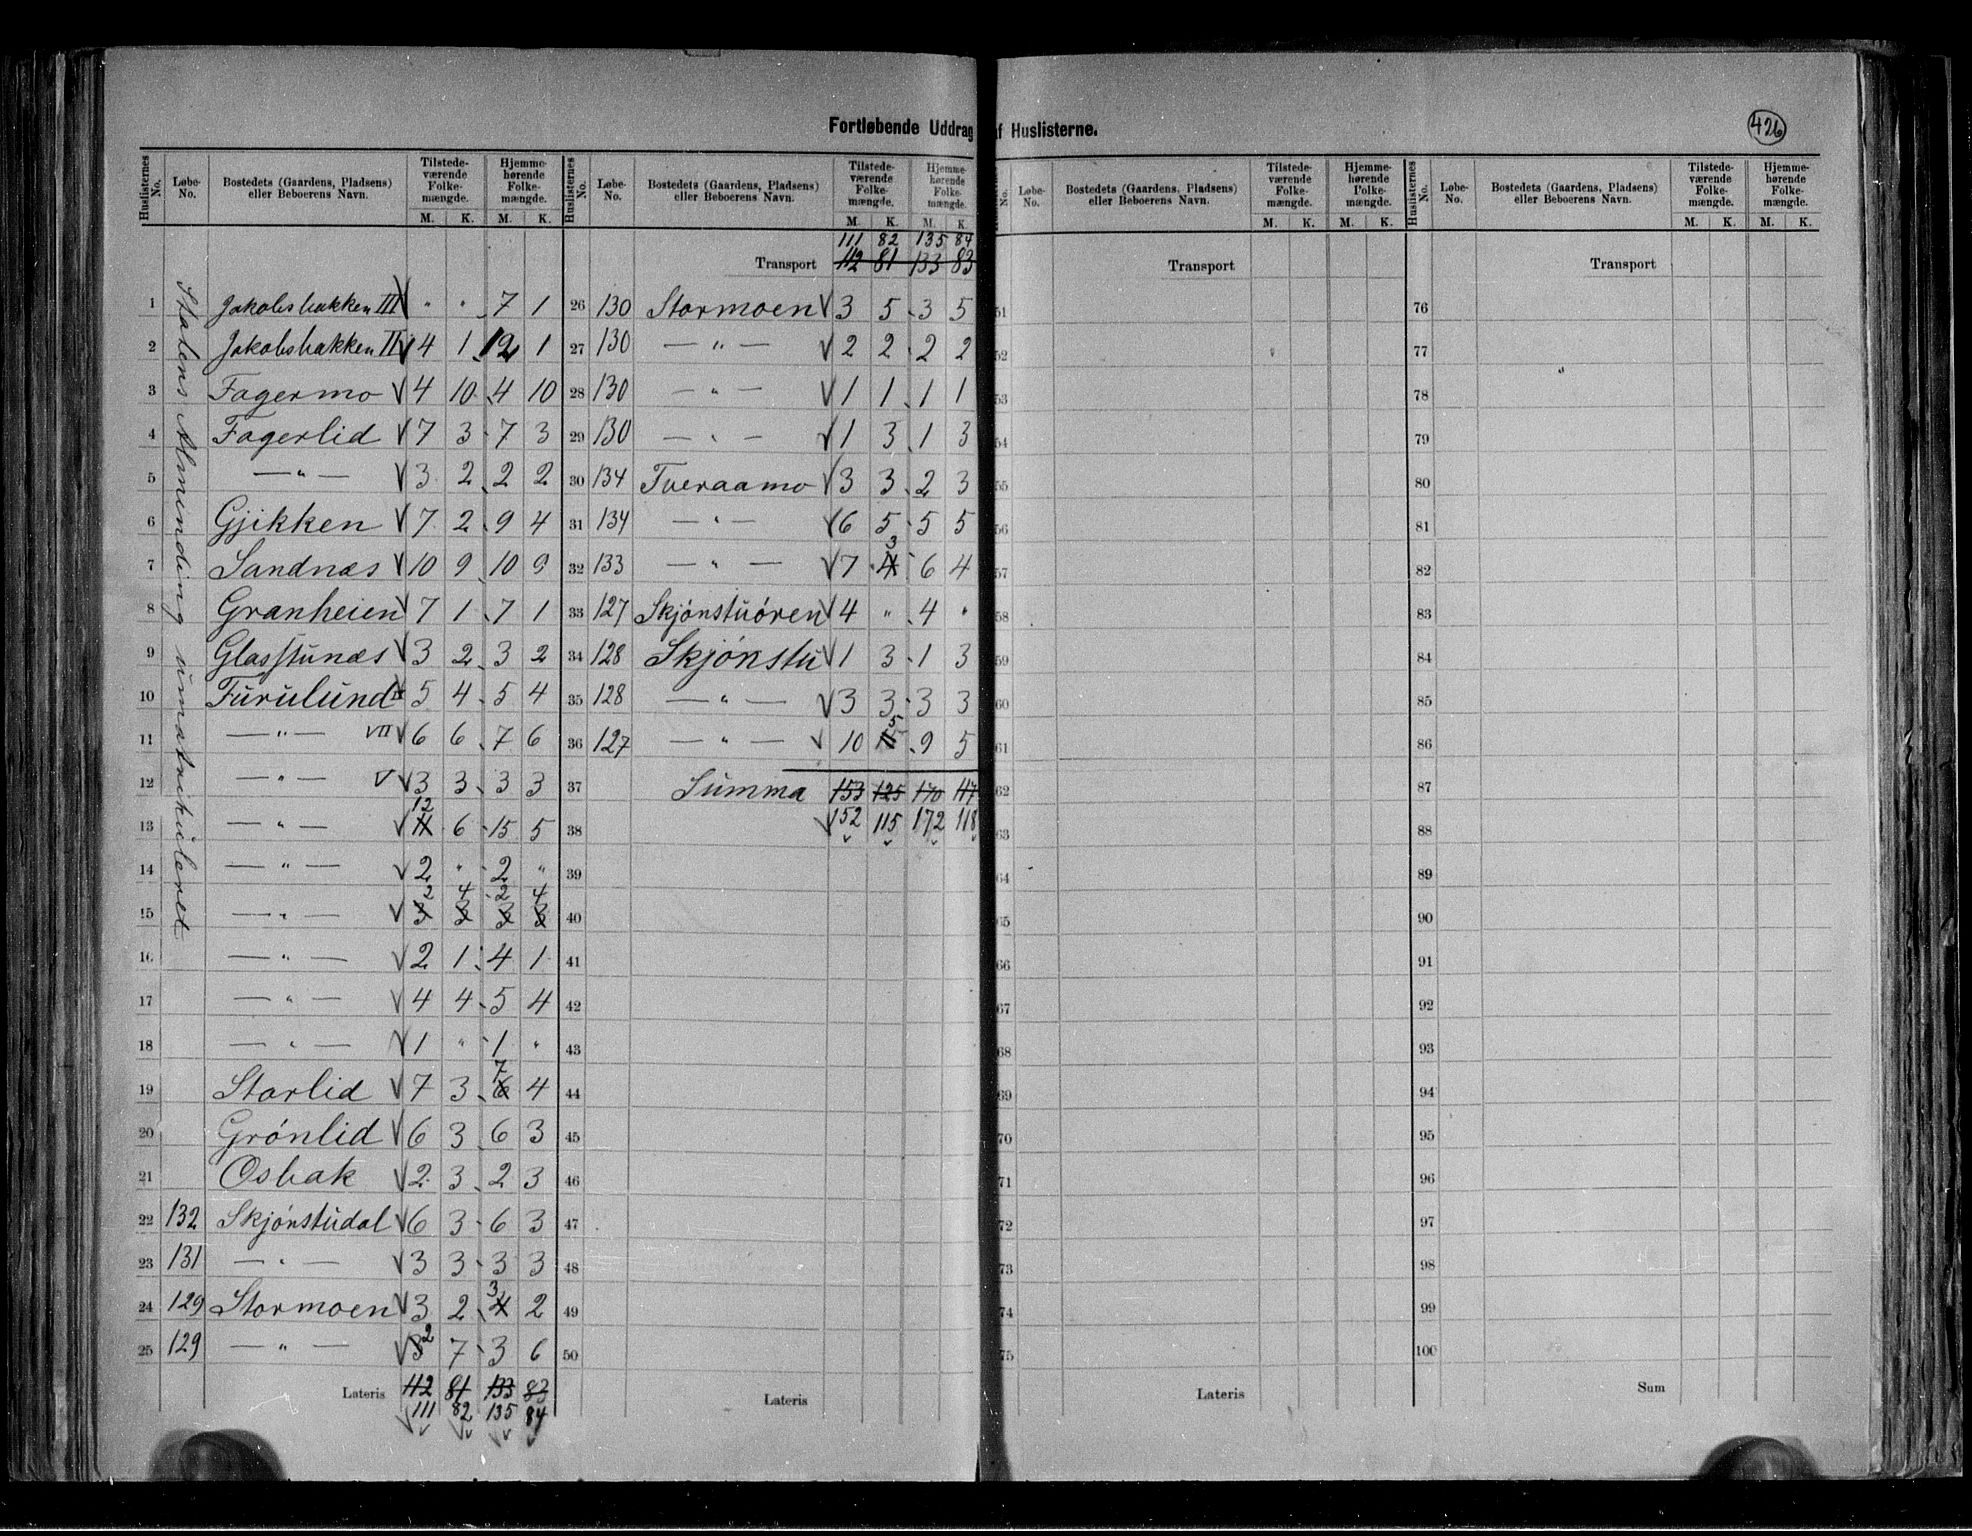 Fortløbende Uddrag af Huslisterne.
426
Huslisternes No. Løbe-No. Bostedets (Gaardens, Pladsens) eller Beboerens Navn. Tilstedeværende Folkemængde. M. K. Hjemmehørende Folkemængde. M. K.
Statens Almending umatrikuleret
1 Jakobsbakken III " " 7 1
2 Jakobsbakken II 4 1 12 1
3 Fagermo 4 10 4 10
4 Fagerlid 7 3 7 3
5 — " — 3 2 2 2
6 Gjikken 7 2 9 4
7 Sandnæs 10 9 10 9
8 Granheien 7 1 7 1
9 Glasstunæs 3 2 3 2
10 Furulund 5 4 5 4
11 — " — VII 6 6 7 6
12 — " — V 3 3 3 3
12
13 — " — 11 6 15 5
14 — " — 2 " 2 "
2 4 2 4
15 — " — 3 3 3 3
16 — " — 2 1 4 1
17 — " — 4 4 5 4
18 — " — 1 " 1 "
7
19 Storlid 7 3 6 4
20 Grönlid 6 3 6 3
21 Osbak 2 3 2 3
22 132 Skjönstudal 6 3 6 3
23 131 — " — 3 3 3 3
3
24 129 Stormoen 3 2 4 2
2
25 129 — " — 3 7 3 6
Lateris 112 81 133 83
111 82 135 84
Huslisternes No. Løbe-No. Bostedets (Gaardens, Pladsens) eller Beboerens Navn. Tilstedeværende Folkemængde. M. K. Hjemmehørende Folkemængde. M. K.
111 82 135 84
Transport 112 81 133 83
26 130 Stormoen 3 5 3 5
27 130 — " — 2 2 2 2
28 130 — " — 1 1 1 1
29 130 — " — 1 3 1 3
30 134 Tveraamo 3 3 2 3
31 134 — " — 6 5 5 5
3
32 133 — " — 7 4 6 4
33 127 Skjönstuören 4 " 4 "
34 128 Skjönstu 1 3 1 3
35 128 — " — 3 3 3 3
5
36 127 — " — 10 15 9 5
37 Summa 153 125 170 117
38 152 115 172 118
39
40
41
42
43
44
45
46
47
48
49
50
Lateris
No. Løbe-No. Bostedets (Gaardens, Pladsens) eller Beboerens Navn. Tilstedeværende Folkemængde. M. K. Hjemmehørende Folkemængde. M. K.
Transport
51
52
53
54
55
56
57
58
59
60
61
62
63
64
65
66
67
68
69
70
71
72
73
74
75
Lateris
Huslisternes No. Løbe-No. Bostedets (Gaardens, Pladsens) eller Beboerens Navn. Tilstedeværende Folkemængde. M. K. Hjemmehørende Folkemængde. M. K.
Transport
76
77
78
79
80
81
82
83
84
85
86
87
88
89
90
91
92
93
94
95
96
97
98
99
100
Sum